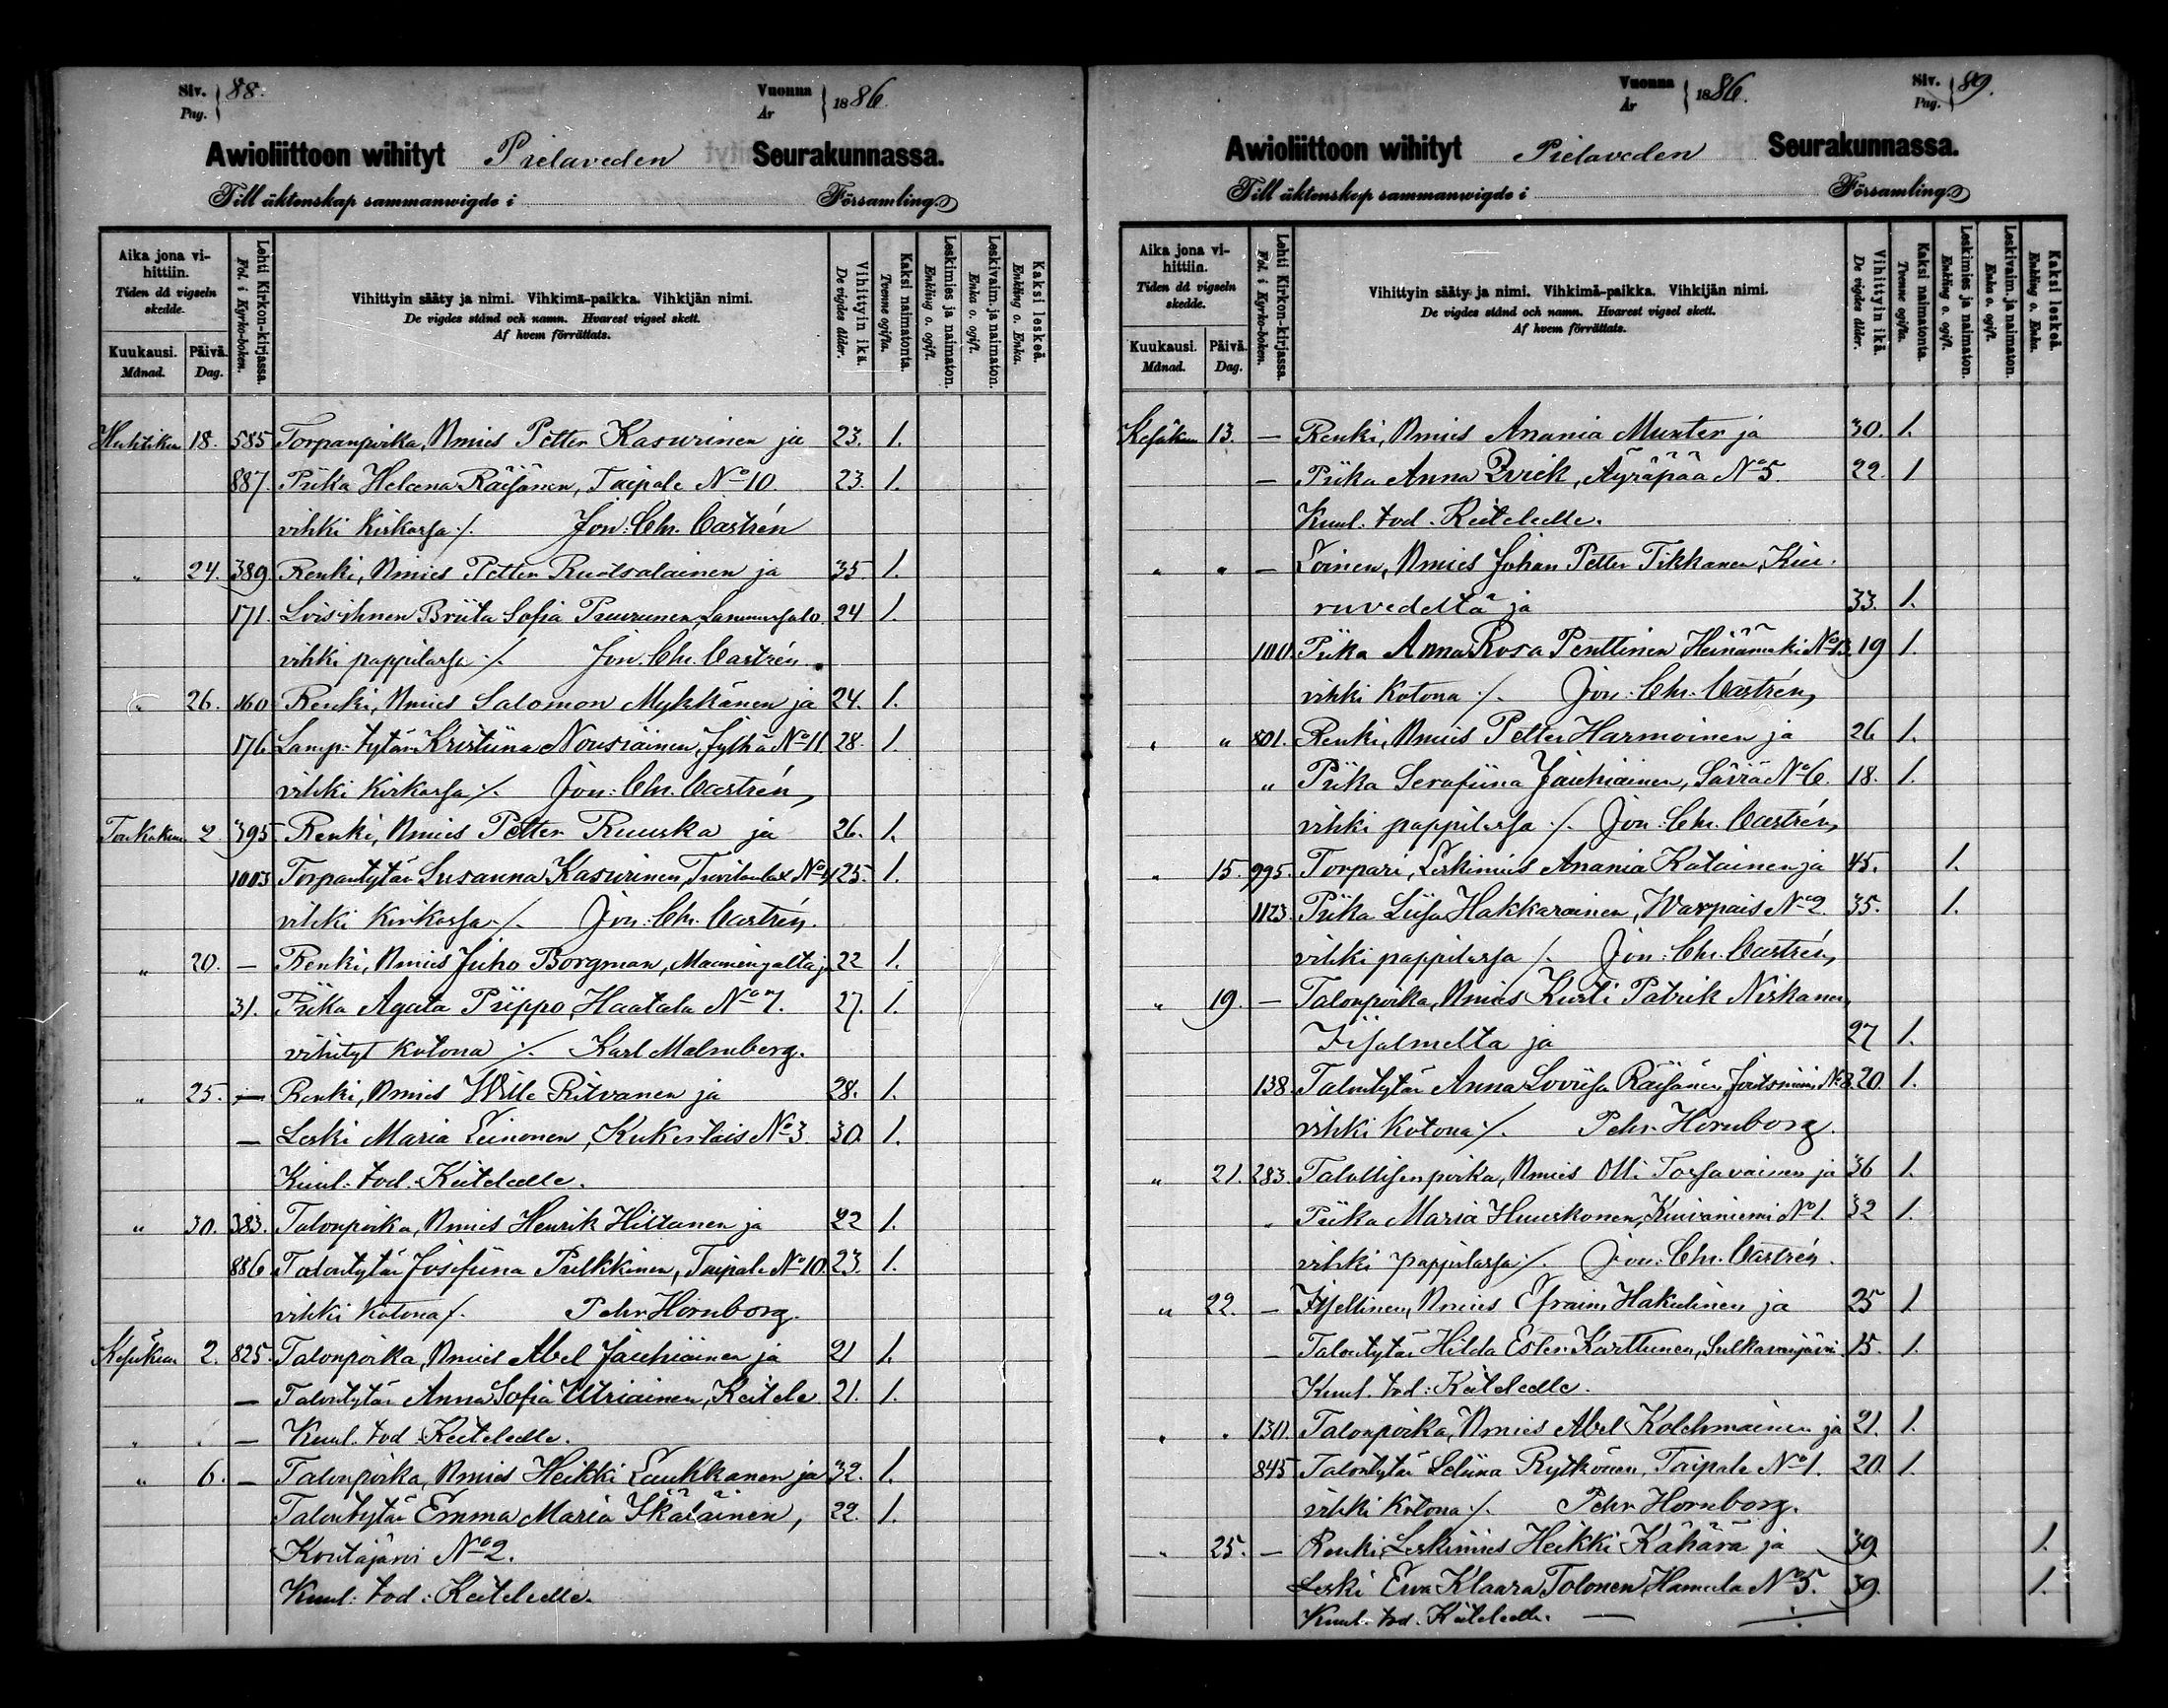 Siv. Pag. 88. Vuonna År 1886.
Awioliittoon wihityt Pielaveden Seurakunnassa.
Till äktenskap sammanwigde i Församling.
Aika jona vihittiin. Tiden då vigseln skedde.
Kuukausi. Månad. Päivä. Dag.
Lehti Kirkon-kirjassa. Fol. i Kyrko-boken.
Vihittyin sääty ja nimi. Vihkimä-paikka. Vihkijän nimi.
De vigdes stånd och namn. Hvarest vigsel skett.
Af hvem förrättats.
Vihittyin ikä. De vigdes ålder.
Kaksi naimatonta. Tvenne ogifta.
Leskimies ja naimaton. Enkling o. ogift.
Leskivaim. ja naimaton. Enka o. ogift.
Kaksi leskeä. Enkling o. Enka.
Huhtikuu 18. 585 Torpanpoika, Nmies Petter Kasurinen ja 23. 1.
887. Piika Heleena Räisänen, Taipale No 10. 23. 1.
vihki Kirkossa ./. Jon: Chr. Castrén
" 24. 389 Renki, Nmies Petter Ruotsalainen ja 35. 1.
171. Lois-ihnen Briita Sofia Puurunen, Lammassalo 24 1.
vihki pappilassa ./. Jon. Chr. Castrén.
" 26. 160 Renki, Nmies Salomon Mykkänen ja 24. 1.
176. Lamp: tytär Kristiina Nousiainen, Jylhä No 11 28. 1.
vihki Kirkossa ./. Jon: Chr. Castrén,
Toukokuu 2. 395. Renki, Nmies Petter Ruuska ja 26. 1.
1003 Torpantytär Susanna Kasurinen, No 4 25. 1.
vihki Kirkossa ./. Jon: Chr. Castrén.
" 20. — Renki, Nmies Juho Borgman, Maaningalta ja 22 1.
31. Piika Agata Piippo, Haatala No 7. 27. 1.
vihityt Kotona ./. Karl Malmberg.
" 25. — Renki, Nmies Wille Ritvanen ja 28. 1.
— Leski Maria Leinonen, No 3 30. 1.
Kuul. tod. Keiteleelle.
" 30. 383. Talonpoika, Nmies Henrik Hiltunen ja 22 1.
886 Talontytär Josefiina Pulkkinen, Taipale No 10. 23. 1.
vihki Kotona ./. Pehr Hornborg.
Kesäkuu 2. 825. Talonpoika, Nmies Abel Jauhiainen ja 21 1.
— Talontytär Anna Sofia Utriainen, Keitele 21. 1.
" " — Kuul. tod. Keiteleelle.
" 6. — Talonpoika, Nmies Heikki Laukkanen ja 32. 1.
Talontytär Emma Maria Ikäläinen, 22. 1.
Koutajärvi No 2.
Kuul: tod: Keiteleelle.
Vuonna År 1886. Siv. Pag. 89.
Awioliittoon wihityt Pielaveden Seurakunnassa.
Till äktenskap sammanwigde i Församling.
Aika jona vihittiin. Tiden då vigseln skedde.
Kuukausi. Månad. Päivä. Dag.
Lehti Kirkon-kirjassa. Fol. i Kyrko-boken.
Vihittyin sääty ja nimi. Vihkimä-paikka. Vihkijän nimi.
De vigdes stånd och namn. Hvarest vigsel skett.
Af hvem förrättats.
Vihittyin ikä. De vigdes ålder.
Kaksi naimatonta. Tvenne ogifta.
Leskimies ja naimaton. Enkling o. ogift.
Leskivaim. ja naimaton. Enka o. ogift.
Kaksi leskeä. Enkling o. Enka.
Kesäkuu 13. — Renki, Nmies Anania Munter ja 30. 1.
— Piika Anna Äyräpää No 5. 22. 1
Kuul. tod. Keiteleelle.
" " — Loinen, Nmies Johan Petter Tikkanen, Kiu-
ruvedeltä ja 33. 1.
100. Piika Anna Rosa Penttinen Heinämäki No 3. 19 1.
vihki Kotona ./. Jon: Chr. Castrén,
" " 801. Renki, Nmies Petter Harmoinen ja 26 1.
" Piika Serafiina Jauhiainen, Säviä No 6. 18. 1.
vihki pappilassa ./. Jon: Chr. Castrén,
" 15. 995. Torpari, Leskimies Anania Katainen ja 45. 1.
1123. Piika Liisa Hakkarainen, Warpais No 2. 35. 1.
vihki pappilassa ./. Jon: Chr. Castrén,
" 19. — Talonpoika, Nmies Kusti Patrik Niskanen,
Iisalmelta ja 27 1.
138 Talontytär Anna Loviisa Räisänen, No 8. 20. 1.
vihki Kotona ./. Pehr Hornborg.
" 21. 283. Talollisenpoika, Nmies Olli Tossavainen ja 36 1.
" Piika Maria Huuskonen, Kuivaniemi No 1. 32 1.
vihki pappilassa ./. Jon: Chr. Castrén.
" 22. — Itsellinen, Nmies Efraim Hakulinen ja 25 1
— Talontytär Hilda Ester Karttunen, Sulkavanjärvi 15. 1.
Kuul. tod: Keiteleelle.
" " 130. Talonpoika, Nmies Abel Kolehmainen ja 21. 1.
845 Talontytär Leliina Rytkönen, Taipale No 1. 20. 1.
vihki Kotona ./. Pehr Hornborg.
" 25. — Renki, Leskimies Heikki Kähärä ja 39 1.
Leski Ewa Klaara Tolonen, Hamula No 5. 39. 1.
Kuul. tod. Keiteleelle. —